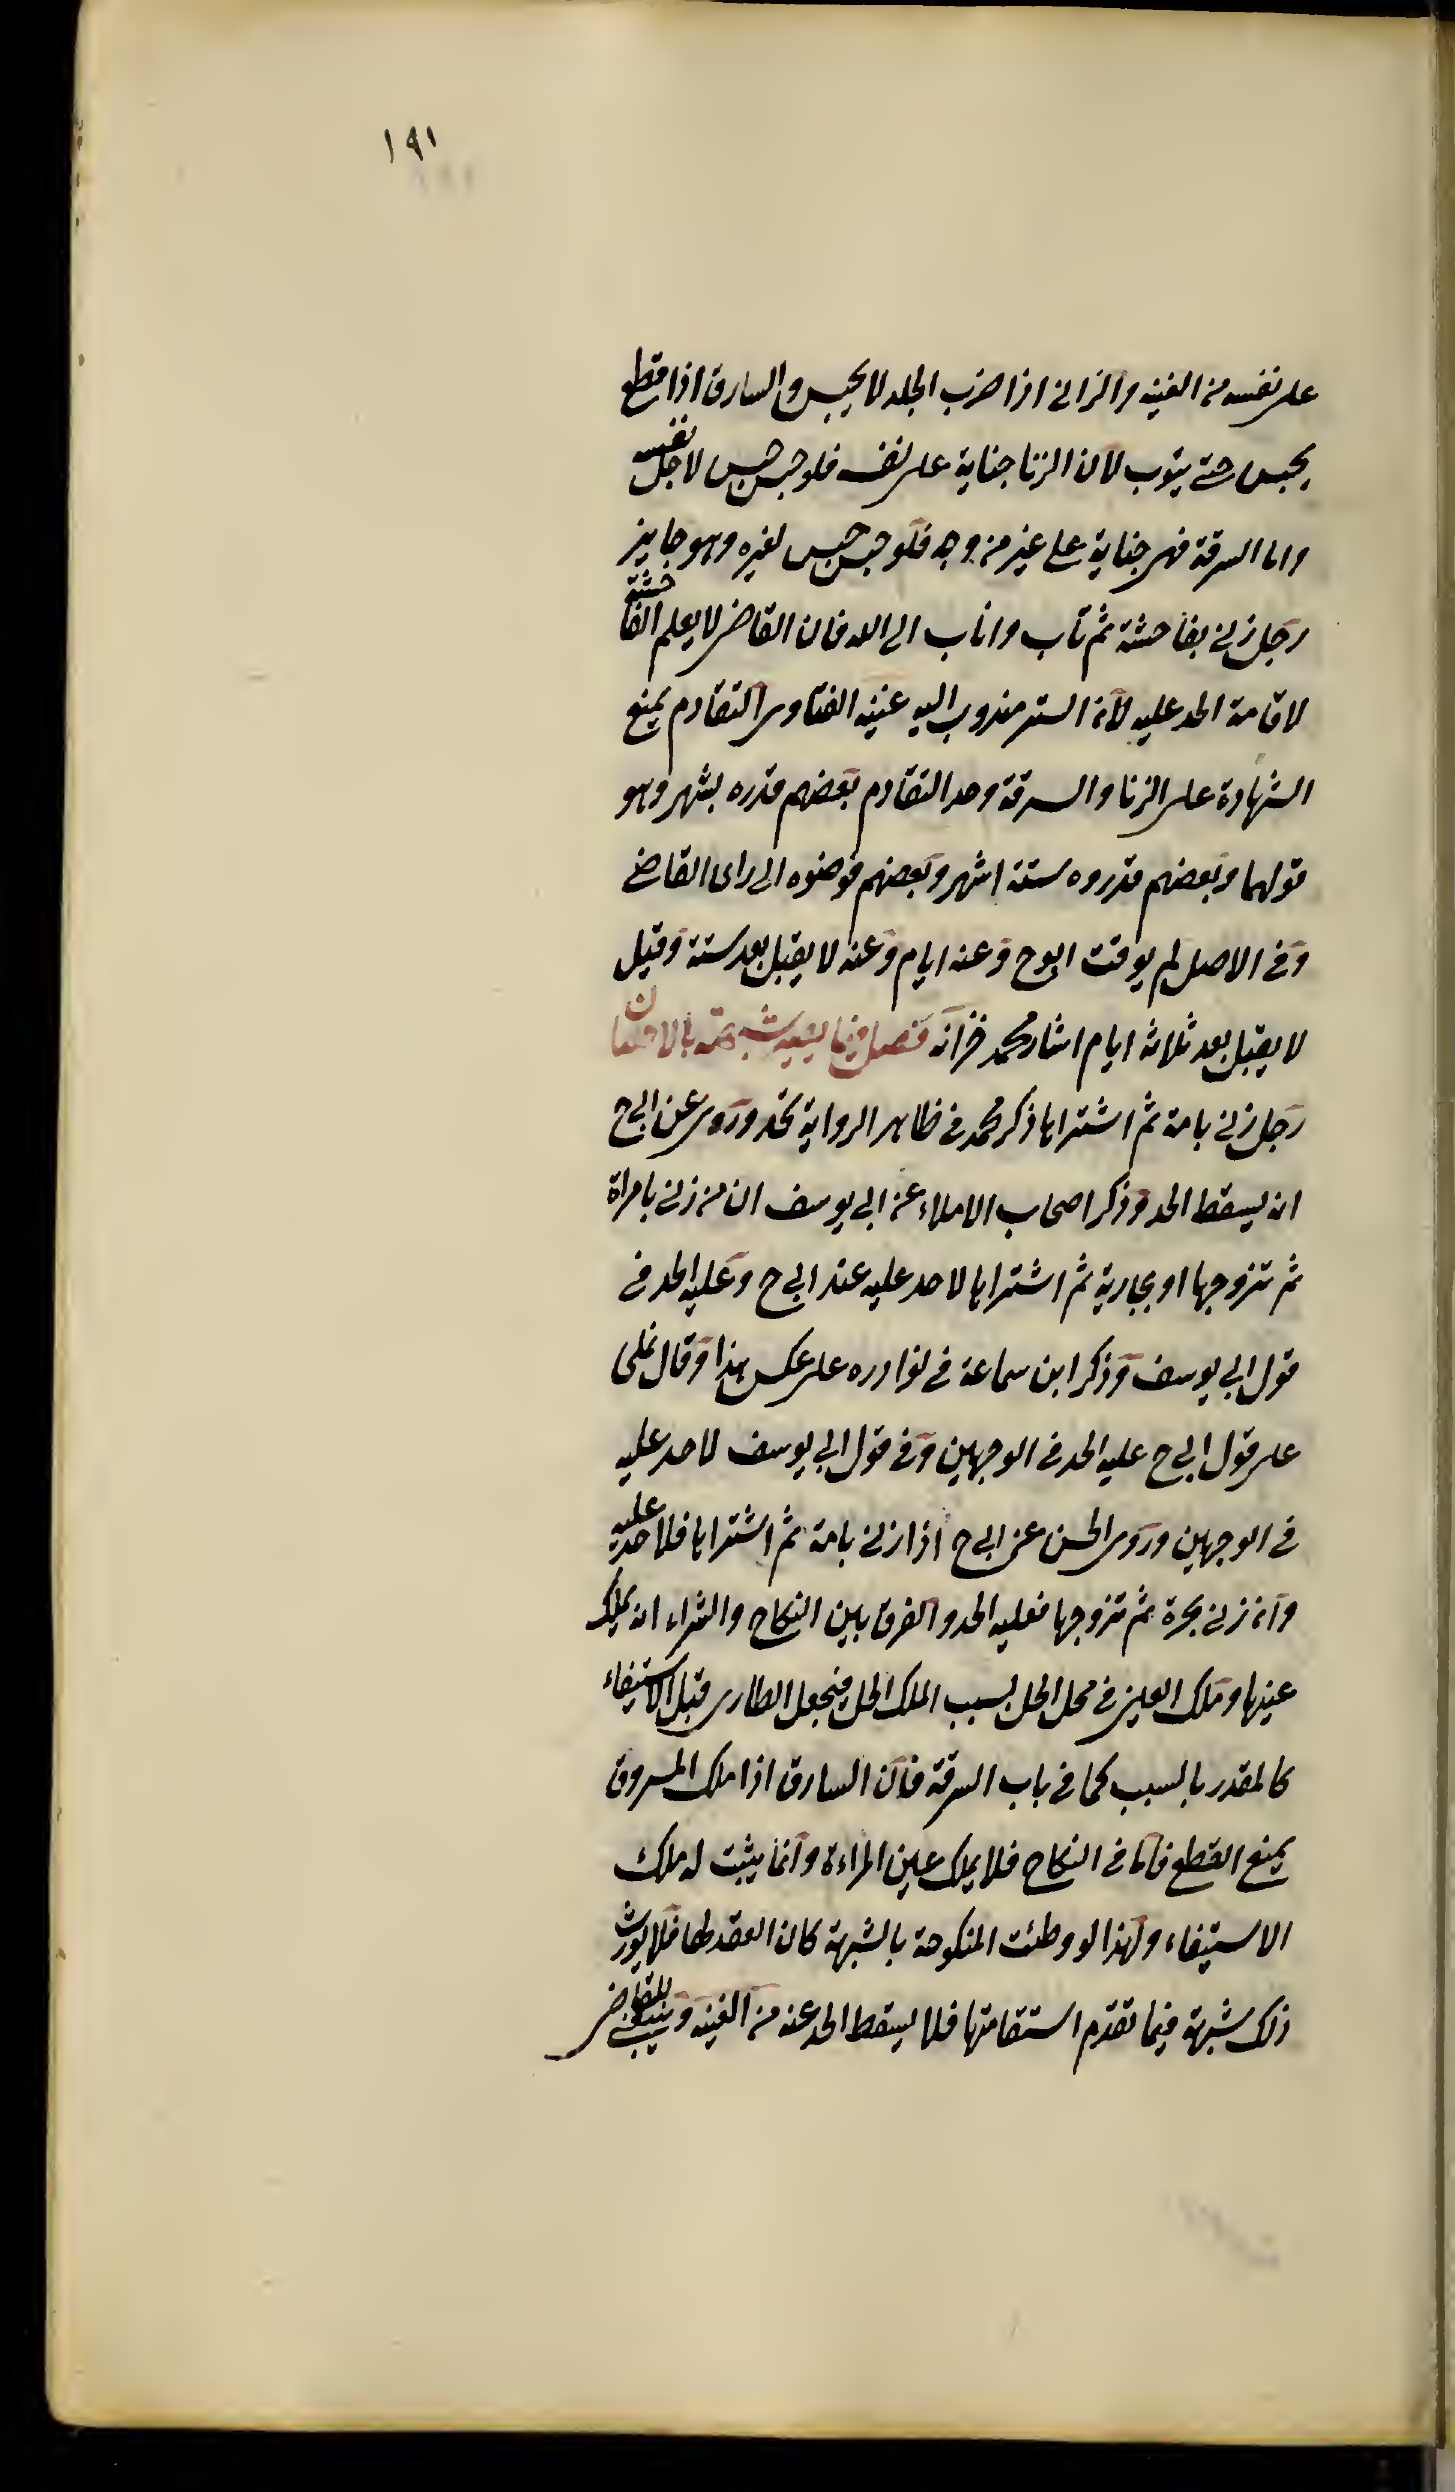 ١٩١
على نفسه من الغنيه والزانى اذا ضرب الجلد لا يحبس والسارق اذا قطع
يحبس حتى يتوب لان الزنا جناية على نفسه فلو حبس حبس لاجل نفسه
واما السرقة فهى جناية على غير من وجه فلو حبس حبس لغيره وهو جايز
رجل زنى بفاحشة ثم تاب واناب الى الله فان القاضى لا يعلم الفاحشة
لاقامة الحد عليه لان الستر مندوب اليه غنيه الفتاوى التقادم يمنع
الشهادة على الزنا والسرقة وحد التقادم بعضهم قدره بشهر وهو
قولهما وبعضهم قدروه ستة اشهر وبعضهم فوضوه الى راى القاضى
وفى الاصل لم يوقت ابوح وعنه ايام وعنه لا يقبل بعد سنة وقيل
لا يقبل بعد ثلاثة ايام اشار محمد خزانه فصل فيما
رجل زنى بامة ثم اشتراها ذكر محمد فى ظاهر الرواية يحد وروى عن ابى ح
انه يسقط الحد وذكر اصحاب الاملاء عن ابى يوسف ان من زنى بامراة
ثم تزوجها او بجارية ثم اشتراها لا حد عليه عند ابى ح وعليه الحد فى
قول ابى يوسف وذكر ابن سماعة فى نوادره على عكس هذا وقال
على قول ابى ح عليه الحد فى الوجهين وفى قول ابى يوسف لا حد عليه
فى الوجهين وروى الحسن عن ابى ح اذا زنى بامة ثم اشتراها فلا حد عليه
وان زنى بحرة ثم تزوجها فعليه الحد والفرق بين النكاح والشراء انه يملك
عينها وملك العين فى محل الحل بسبب الملك الحل فيجعل الطارى قبل الاستيفاء
كالمقدر بالسبب كما فى باب السرقة فان السارق اذا ملك المسروق
يمنع القطع فاما فى النكاح فلا يملك عين المراءة وانما يثبت له ملك
الاستيفاء ولهذا لو وطئت المنكوحة بالشبهة كان العقد لها فلا يورث
ذلك شبهة فيما تقدم استقامتها فلا يسقط الحد عنه من الغنيه وينبغى للقاضى